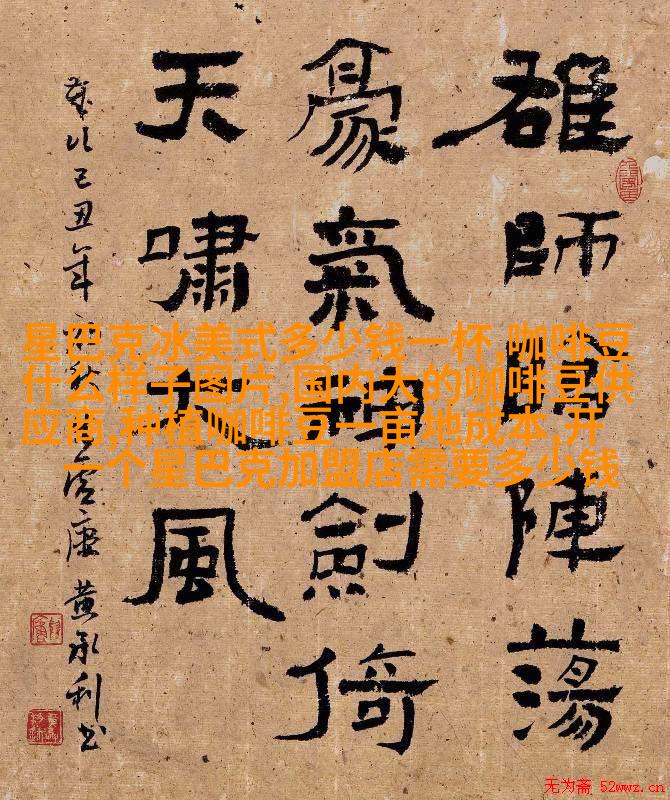 雄師陣蕩
豪氣劍倚
天嘯風
歲次己丑年 黄承利书
星巴克冰美式多少钱一杯,咖啡豆
什么样子图片,国内大的咖啡豆供
应商,种植咖啡豆一亩地成本,开
一个星巴克加盟店需要多少钱
无为斋 52wwz.cn